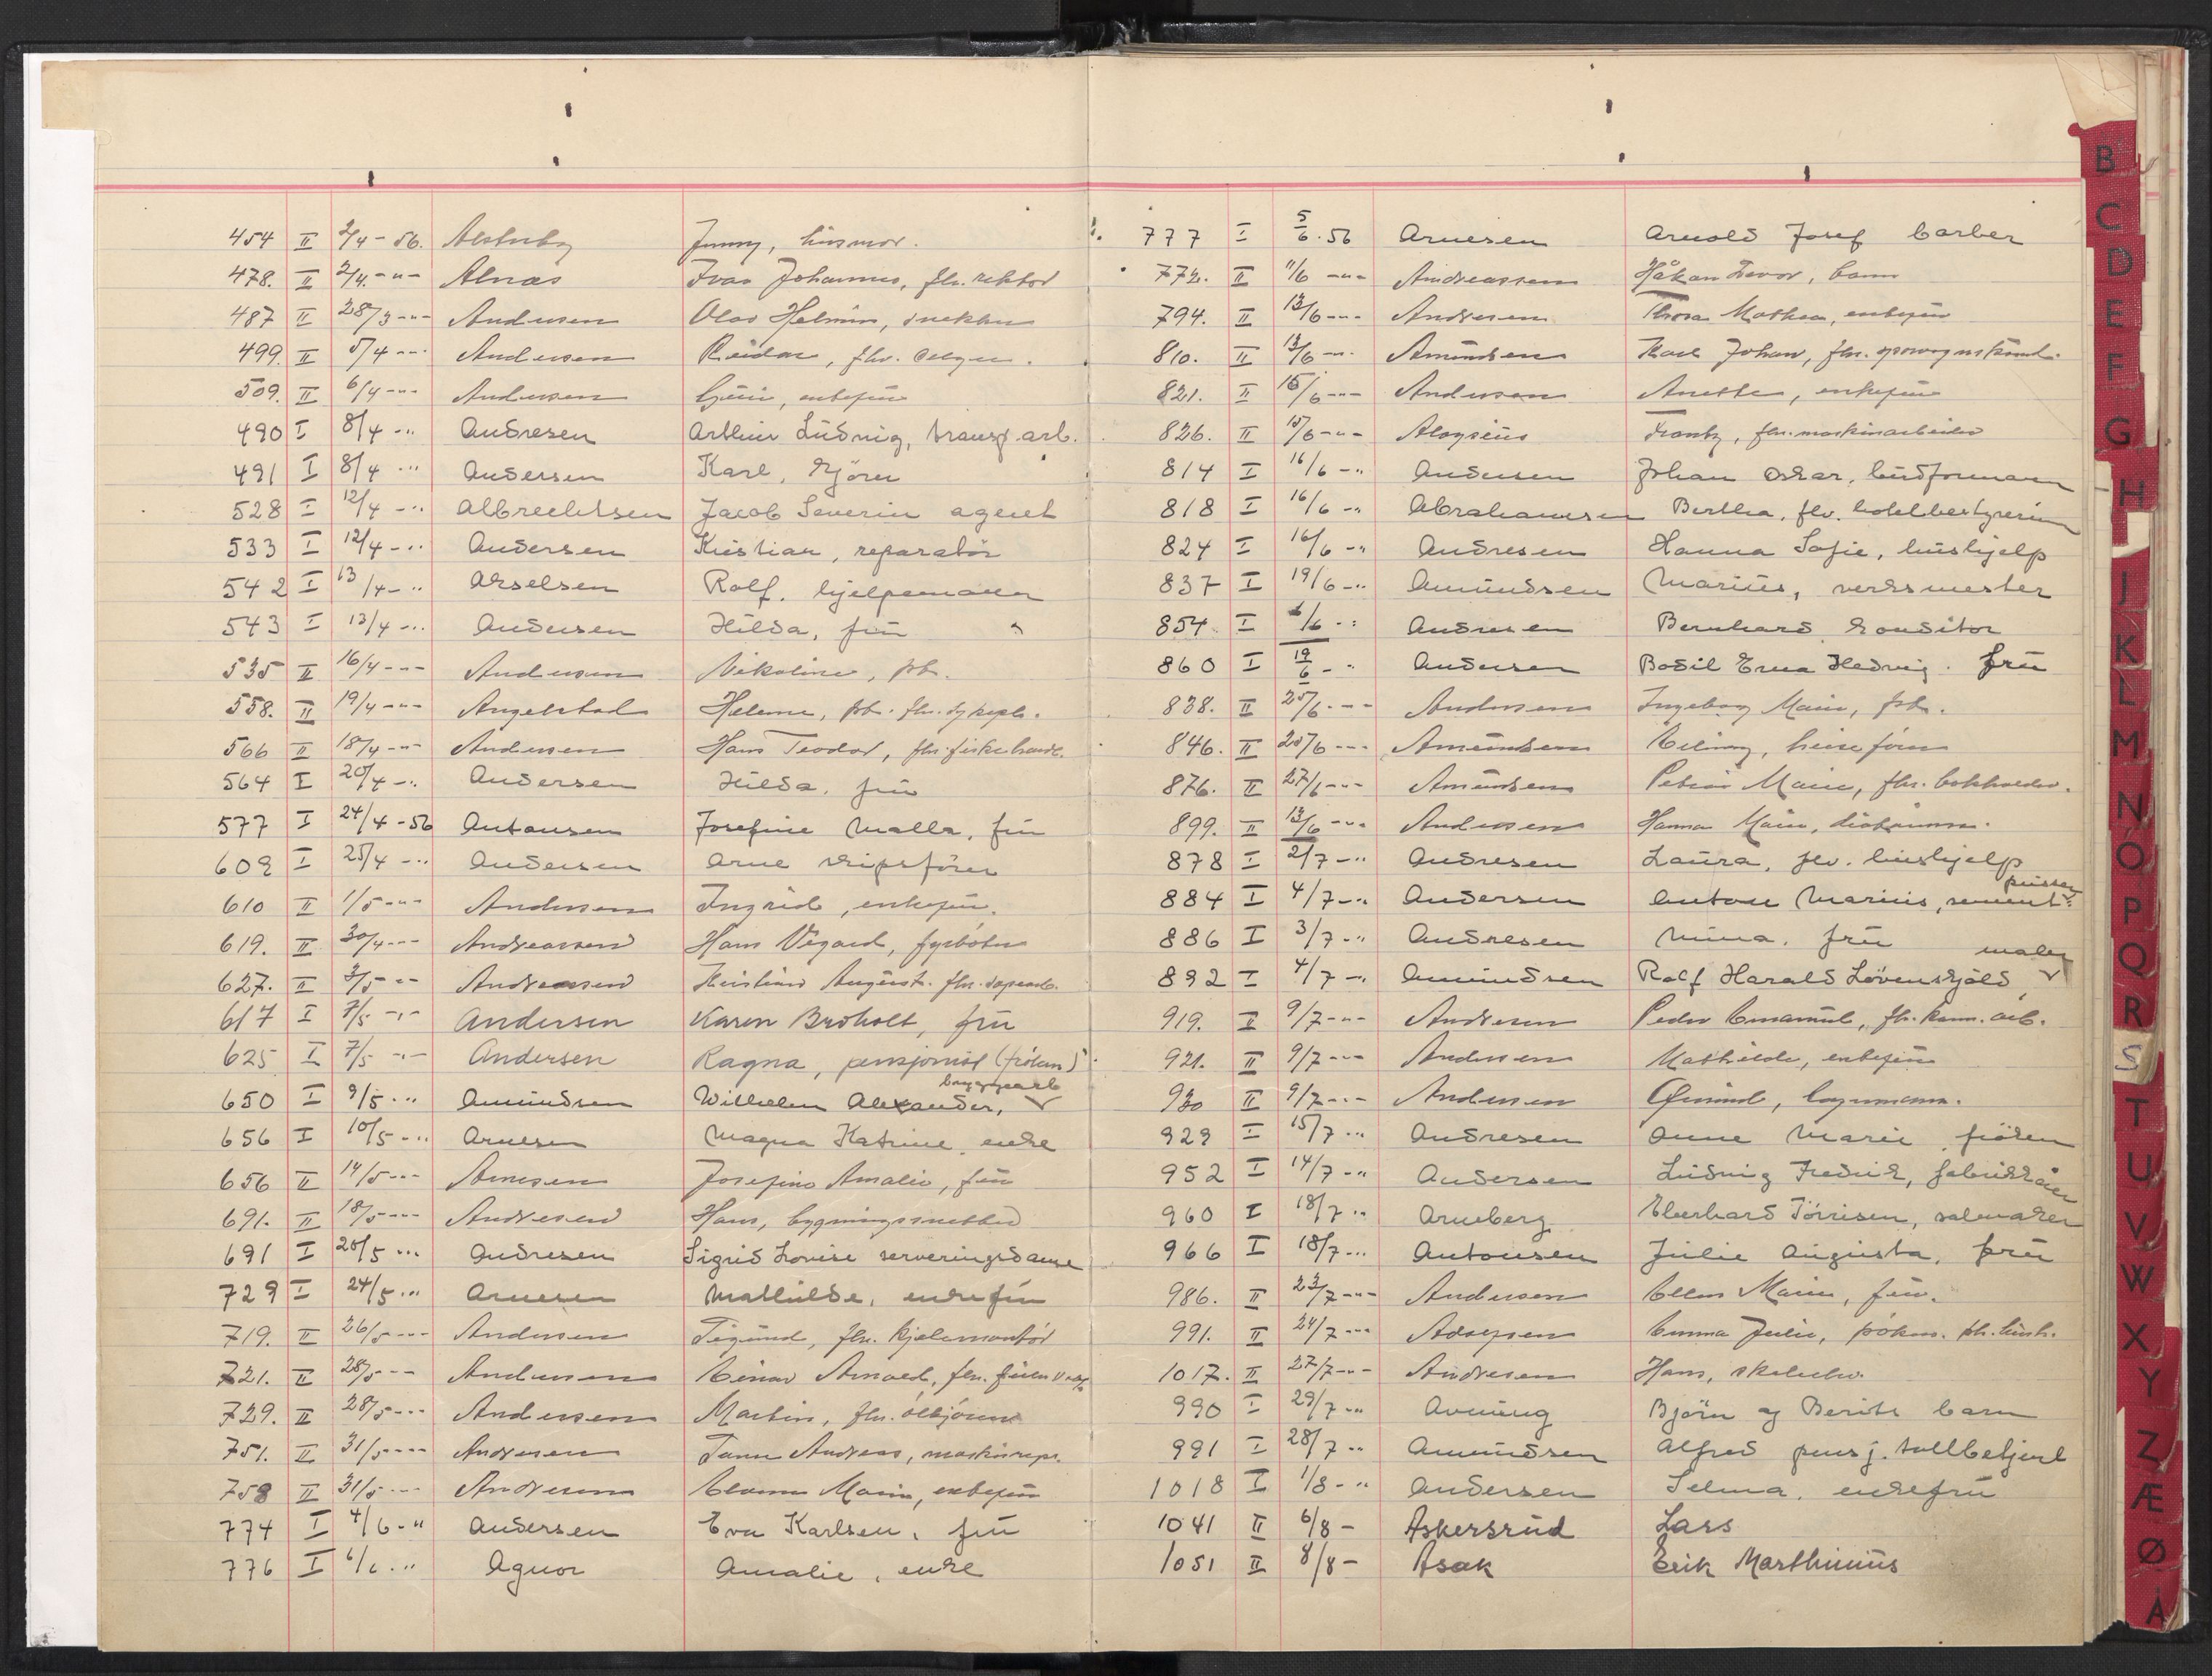 454 II 2/4-56. Alsterby Jenny, husmor.
478. II 2/4.-"- Alnæs Ivar Johannes, fhv. rektor
487 II 28/3-"- Andersen Olav Helmin, snekker
499. II 5/4-"- Andersen Reidar, fhv. selger.
509. II 6/4-"- Andersen enkefrü
490 I 8/4-" Andresen Arthur Lüdvig, transp.arb.
491 I 8/4-" Andersen Karl, kjörer
528 I 12/4-" Albrechtsen Jacob Severin agent
533 I 12/4-" Andersen Kristian, reparatör
542 I 13/4-" Akselsen Rolf. hjelpemann
543 I 13/4-" Andersen Hilda, frü
535 II 16/4-"- Andersen Nikoline, frk.
558. II 19/4-"- Angelstad Helene, frk. fhv. sykepl.
566 II 18/4-"- Andersen Hans Teodor, fhv. fiskehandl.
564 I 20/4-" Andersen Hilda. frü
577 I 24/4-56 Antonsen Josefine Malla, frü
602 I 25/4-" Andersen Arne skipsförer
610 II 1/5-"- Andersen Ingrid, enkefrü.
619. II 30/4-"- Andreassen Hans Vegard, fyrböter
627. II 3/5-"- Andreassen Kristian August. fhv. såpearb.
617 I 7/5-"- Andersen Karen Broholt, frü
625 I 7/5-"- Andersen Ragna, pensjonist (fröken)
byggearb
650 I 9/5-" Amündsen Wilhelm Alexander,
656 I 10/5-" Arnesen Magna Katrine enke
656 II 14/5-"- Arnesen Josefine Amalie, frü
691. II 18/5-"- Andresen Hans, bygningssnekker
691 I 20/5-" Andresen Sigrid Lovise serveringsdame
729 I 24/5-" Arnesen Mathilde, enkefrü
719. II 26/5-"- Andersen Sigünd, fhv. kjelemontör
721. II 28/5-"- Andersen Einar Arnold, fhv.
729. II 28/5-"- Andersen Martin, fhv. ölkjörer
751. II 31/5-"- Andresen Andreas, maskinrepr.
758 II 31/5-"- Andresen Marie, enkefrü
774 I 4/6-" Andersen Eva Karlsen, frü
776 I 6/6-" Agnor Amalie, enke
777 I 5/6.56 Arnesen Arnold Josef barber
772. II 11/6-"- Andreassen Håkan Trevor, barn
794. II 12/6-"- Andresen Thora Mathea, enkefrü
810. II 13/6-"- Amündsen Karl Johan, fhv.
821. II 15/6-"- Anderson Anette, enkefrü
826. II 15/6-"- Aloysius Frantz, fhv. maskinarbeider
814 I 16/6-" Andersen Johan Oskar, büdformann
818 I 16/6-" Abrahamsen Bertha, fhv. hotellbestyrerinne
824 I 16/6-" Andresen Hanna Sofie, hüshjelp
837 I 19/6-" Amündsen Mariüs, verksmester
854 I 6/6-" Andresen Bernhard konditor
860 I 19/6-" Andersen Bodil Erna Hedvig. frü
838. II 25/6-"- Andersen Ingeborg Marie, frk.
846. II 20/6-"- Amündsen
876. II 27/6-"- Amündsen Petra Marie, fhv. bokholder.
899. II 13/6-"- Andersen Hanna Marie, diakonisse.
878 I 2/7-" Andresen Laura, fhv. hüshjelp
pusser
884 I 4/7-" Andersen Anton Mariüs, sement.
886 I 3/7-" Andresen Mina. frü
maler
892 I 4/7-" Amündsen Rolf Harald Lövenskjold,
919. II 9/7-"- Andresen Peder Emanüel, fhv. kom. arb.
921. II 9/7-"- Andersen Mathilde, enkefrü
930 II 9/7-"- Andersen Öjvind, lagermann.
929 I 15/7-" Andresen Anne Marie fröken
952 I 14/7-" Andersen Lüdvig Fredrik, fabrikkeier
960 I 18/7-" Arneberg Eberhard Törrisen, salmaker
966 I 18/7-" Antonsen Jülie Augusta, frü
986. II 23/7-"- Andersen Ellen Marie, frü.
991. II 24/7-"- Adsersen Emma Julie,
1017. II 27/7-"- Andresen Hans, skoleelev.
990 I 29/7-" Avening Björn og Berith barn
991 I 28/7-" Amündsen Alfred pensj. tollbetjent
1018 I 1/8-" Andersen Selma, enkefrü
1041 II 6/8- Askersrüd Lars
1051 II 8/8- Asak Erik Marthiniüs
B
C
D
E
F
G
H
J
K
L
M
N
O
P
Q
R
S
T
U
V
W
X
Y
Z
Æ
Ø
Å